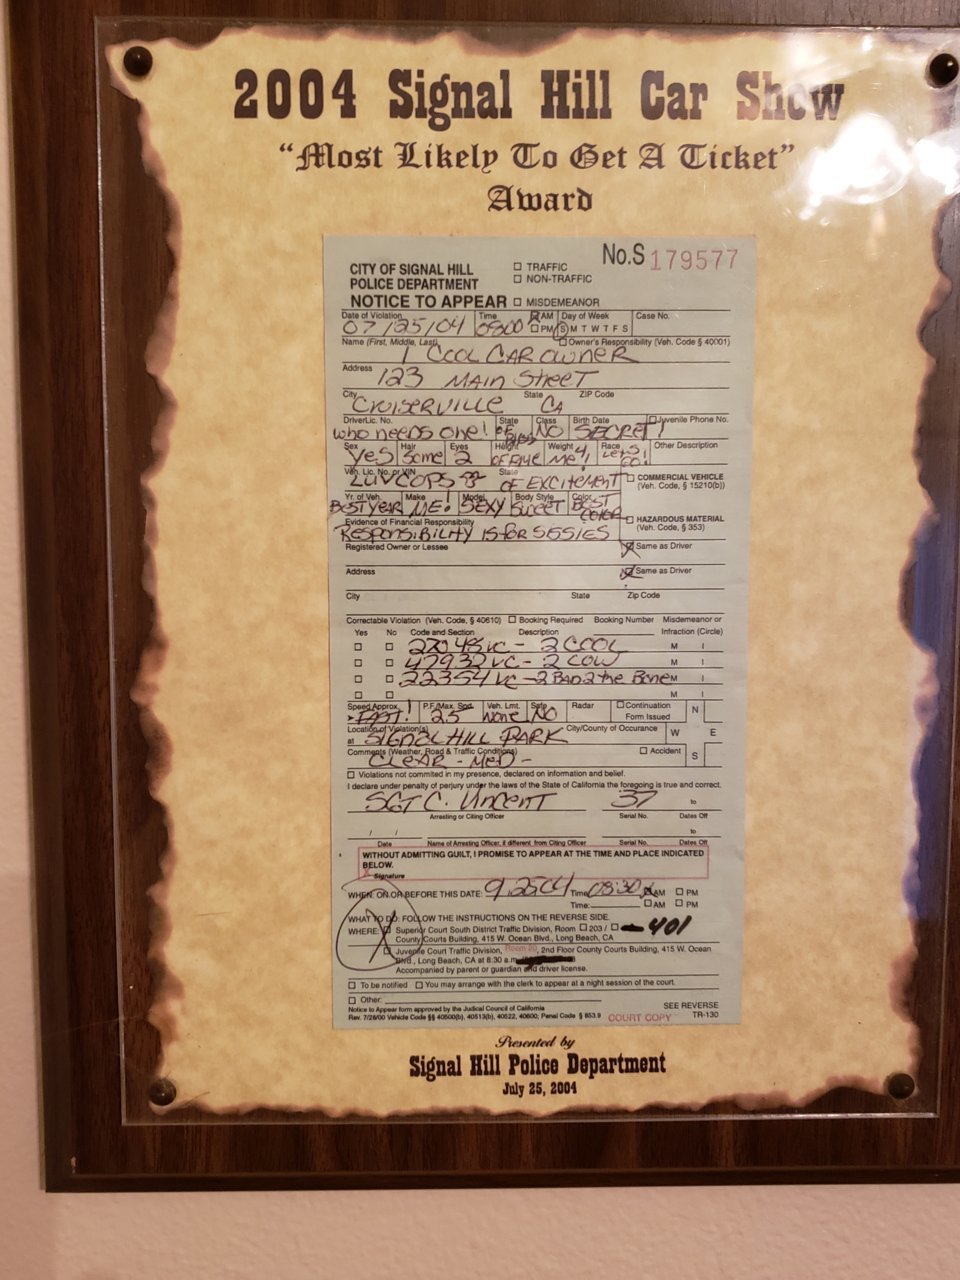 2004 Signal Hill Car Show
"Most Likely To Get A Ticket"
Award
No.S 179577
CITY OF SIGNAL HILL
POLICE DEPARTMENT
NOTICE TO APPEAR
☐ TRAFFIC
☐ NON-TRAFFIC
☐ MISDEMEANOR
Date of Violation Time AM PM Day of Week S M T W T F S Case No.
07/25/04 0800
Name (First, Middle, Last) ☐ Owner's Responsibility (Veh. Code § 40001)
1 COOL CAR OWNER
Address
123 MAIN STREET
City State ZIP Code
CRUISERVILLE CA
Driver Lic. No. State Class Birth Date ☐ Juvenile Phone No.
WHO NEEDS ONE! OF NO SECRET
Sex Hair Eyes Height Weight Race Other Description
YES Some 2 OF FIVE ME 4! LET'S GO!
Veh. Lic. No. or VIN State ☐ COMMERCIAL VEHICLE
(Veh. Code, § 15210(b))
LUVCOPS OF EXCITEMENT
Yr. of Veh. Make Model Body Style Color
BEST YEAR ME! SEXY SWEET BEST COLOR
☐ HAZARDOUS MATERIAL
(Veh. Code, § 353)
Evidence of Financial Responsibility
RESPONSIBILITY IS FOR SISSIES
Registered Owner or Lessee Same as Driver
Address Same as Driver
City State Zip Code
Correctable Violation (Veh. Code, § 40610) ☐ Booking Required Booking Number Misdemeanor or
Yes No Code and Section Description Infraction (Circle)
☐ ☐ VC - 2 COOL M I
☐ ☐ 47932 VC - 2 COW M I
☐ ☐ 22354 VC - 2 BAD 2 the Bone M I
☐ ☐ M I
Speed Approx. P.F./Max. Spd. Veh. Lmt. Safe Radar ☐ Continuation
Form Issued N
FAST! 25 None NO
Location of Violation(s) City/County of Occurance W E
at SIGNAL HILL PARK
Comments (Weather, Road & Traffic Conditions) ☐ Accident S
CLEAR - MED -
☐ Violations not commited in my presence, declared on information and belief.
I declare under penalty of perjury under the laws of the State of California the foregoing is true and correct.
SGT C. Vincent 37 to
Arresting or Citing Officer Serial No. Dates Off
/ / to
Date Name of Arresting Officer, if different from Citing Officer Serial No. Dates Off
WITHOUT ADMITTING GUILT, I PROMISE TO APPEAR AT THE TIME AND PLACE INDICATED
BELOW.
X Signature
WHEN: ON OR BEFORE THIS DATE: 9.25.04 Time: 08:30 AM ☐ PM
Time: ☐ AM ☐ PM
WHAT TO DO: FOLLOW THE INSTRUCTIONS ON THE REVERSE SIDE.
WHERE: ☐ Superior Court South District Traffic Division, Room ☐ 203 / ☐ 401
County Courts Building, 415 W. Ocean Blvd., Long Beach, CA
☐ Juvenile Court Traffic Division, 2nd Floor County Courts Building, 415 W. Ocean
Blvd., Long Beach, CA at 8:30 a.m.
Accompanied by parent or guardian and driver license.
☐ To be notified ☐ You may arrange with the clerk to appear at a night session of the court.
☐ Other:
Notice to Appear form approved by the Judicial Council of California SEE REVERSE
Rev. 7/28/00 Vehicle Code §§ 40500(b), 40513(b), 40522, 40600; Penal Code § 853.9 COURT COPY TR-130
Presented by
Signal Hill Police Department
July 25, 2004